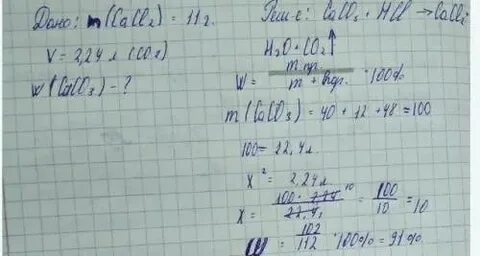 Дано: m(CaCl₂) = 11 г.
V = 2,24 л (CO₂)
w(CaCO₃) - ?
Реш-е: CaCO₃ + HCl → CaCl₂
H₂O + CO₂↑
W = m пр. / m + · 100%
m(CaCO₃) = 40 + 12 + 48 = 100
100 = 22,4 л
X = 2,24 л
X = 100 · 2,24 / 22,4 10 = 100 / 10 = 10
W = 102 / 112 · 100% = 91%